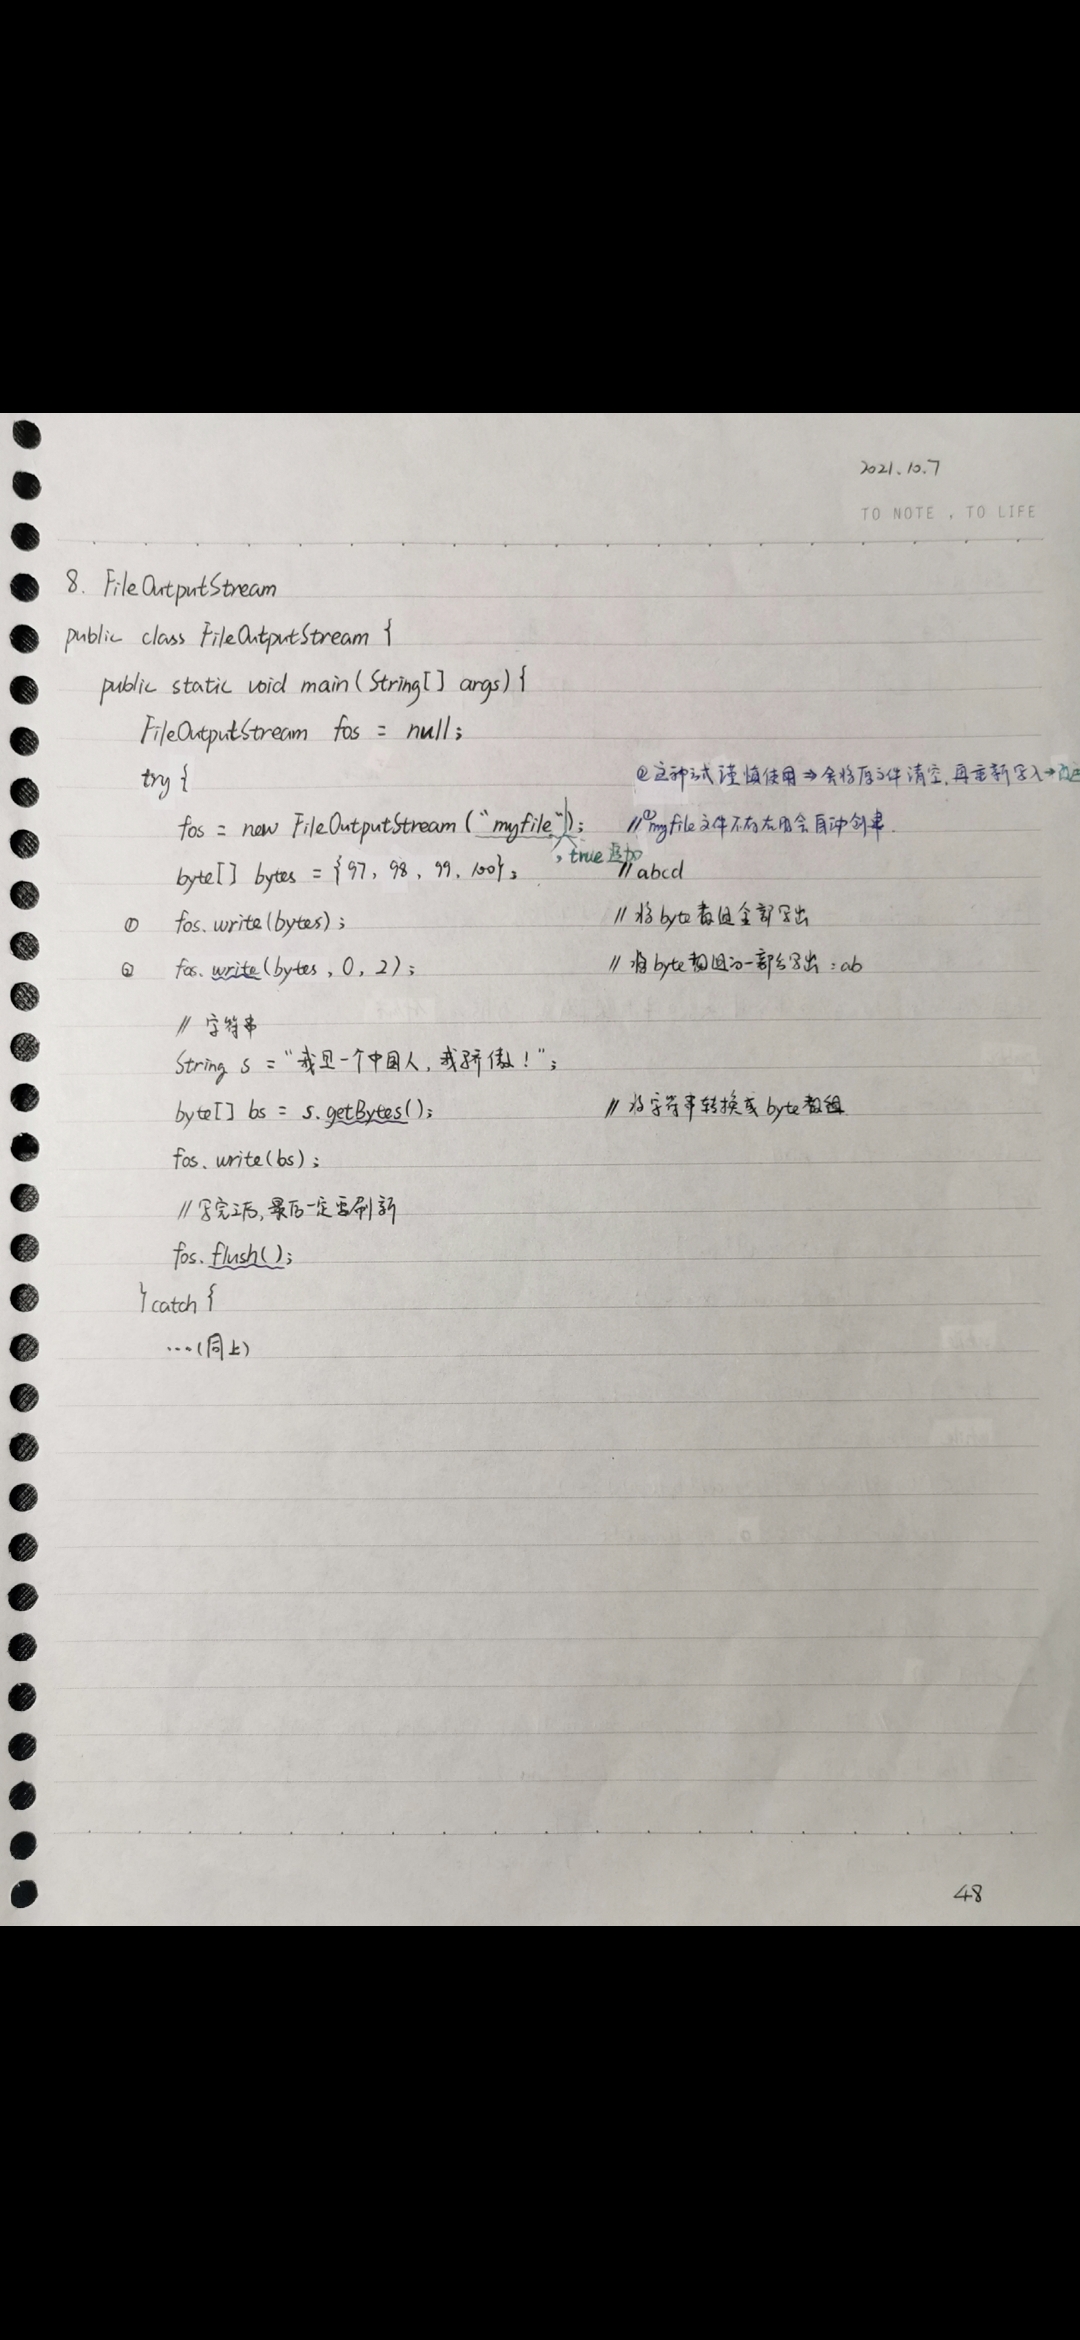 2021.10.7
TO NOTE , TO LIFE
8. FileOutputStream
public class FileOutputStream {
public static void main(String[] args){
FileOutputStream fos = null;
try {
②这种方式谨慎使用⇒会将原文件清空,再重新写入→
fos = new FileOutputStream("myfile"); //①myfile文件不存在时会自动创建.
, true 追加
byte[] bytes = {97, 98, 99, 100}; //abcd
① fos.write(bytes); //将byte数组全部写出
② fos.write(bytes, 0, 2); //将byte数组的一部分写出:ab
// 字符串
String s = "我是一个中国人,我骄傲!";
byte[] bs = s.getBytes(); //将字符串转换成byte数组
fos.write(bs);
//写完之后,最后一定要刷新
fos.flush();
}catch {
...(同上)
48